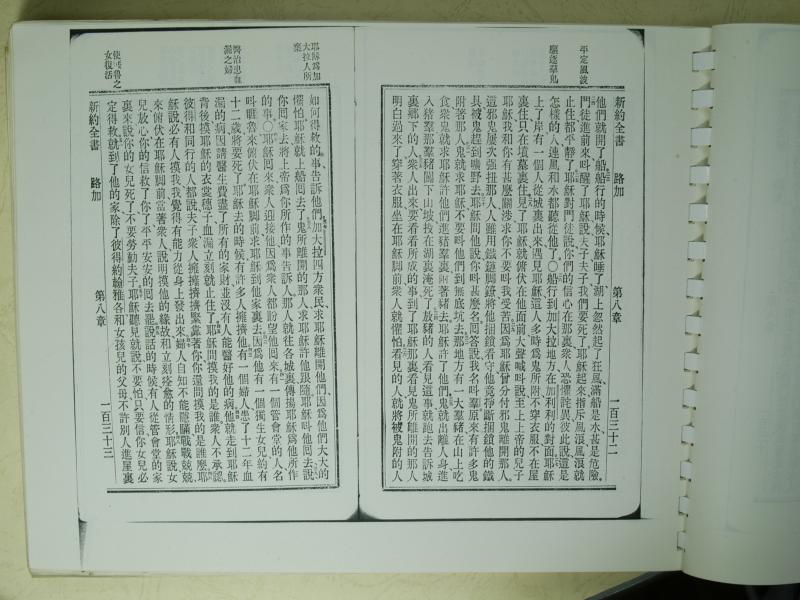 平定風波
驅逐羣鬼
新約全書
路加
第八章
一百三十二
他們就開了船船行的時候耶穌睡了湖上忽然起了狂風滿船是水甚是危險
門徒進前來叫醒了耶穌說夫子夫子我們要死了耶穌起來指斥風浪風浪就
止住都平靜了耶穌對門徒說你們的信心在那裏衆人恐懼詫異彼此說這是
怎樣的人連風和水都聽從他了○船行到加大拉地方在加利利的對面耶穌
上了岸有一個人從城裏出來遇見耶穌這人多時爲鬼所附不穿衣服不在屋
裏住只在墳墓裏住見了耶穌就俯伏在他面前大聲喊叫說至上上帝的兒子
耶穌我和你有甚麽關涉求你不要叫我受苦因爲耶穌曾分付邪鬼離開那人
這邪鬼屢次強扭那人人雖用鐵鏈脚鐐將他捆鎖看守他竟掙斷捆鎖他的鐵
具被鬼趕到曠野去耶穌問他說你叫甚麽名回答說我名叫羣原來有許多鬼
附著那人鬼就求耶穌不要叫他們到無底坑去那地方有一大羣豬在山上吃
食衆鬼就求耶穌許他們進豬羣裏附著豬去耶穌許了他們鬼就出離人身進
入豬羣那羣豬闖下山坡投在湖裏淹死了放豬的人看見這事就跑去告訴城
裏鄉下的人衆人出來要看看所成的事到了耶穌那裏看見鬼所離開的那人
明白過來了穿著衣服坐在耶穌脚前衆人就懼怕看見的人就將被鬼附的人
耶穌爲加
大拉人所
棄
醫治患血
漏之婦
使睚魯之
女復活
如何得救的事告訴他們加大拉四方衆民求耶穌離開他們因爲他們大大的
懼怕耶穌就上船囘去了鬼所離開的那人求耶穌許他跟隨耶穌叫他囘去說
你囘家去將上帝爲你所作的事告訴人那人就往各城裏傳揚耶穌爲他所作
的事○耶穌囘來衆人迎接他因爲衆人都盼望他囘來有一個管會堂的人名
叫睚魯來俯伏在耶穌脚前求耶穌到他家裏去因爲他有一個獨生女兒約有
十二歲將要死了耶穌去的時候有許多人擁擠他有一個婦人患了十二年血
漏的病因請醫生費盡了所有的家財並沒有人能醫好他的病他就走到耶穌
背後摸耶穌的衣裳穗子血漏立刻就止住了耶穌問摸我的是誰衆人不承認
彼得和同行的人都說夫子衆人擁擁擠擠緊靠著你你還問摸我的是誰麽耶
穌說必有人摸我我覺得有能力從身上發出來婦人自知不能隱瞞戰戰兢兢
來俯伏在耶穌脚前當著衆人說明摸他的緣故和立刻痊愈的情形耶穌說女
兒放心你的信救了你了平平安安的囘去罷說話的時候有人從管會堂的家
裏來說你的女兒死了不要勞動夫子耶穌聽見就說不要怕只要信你女兒必
定得救就到了他的家除了彼得約翰雅各和女孩兒的父母不許別人進屋裏
新約全書
路加
第八章
一百三十三